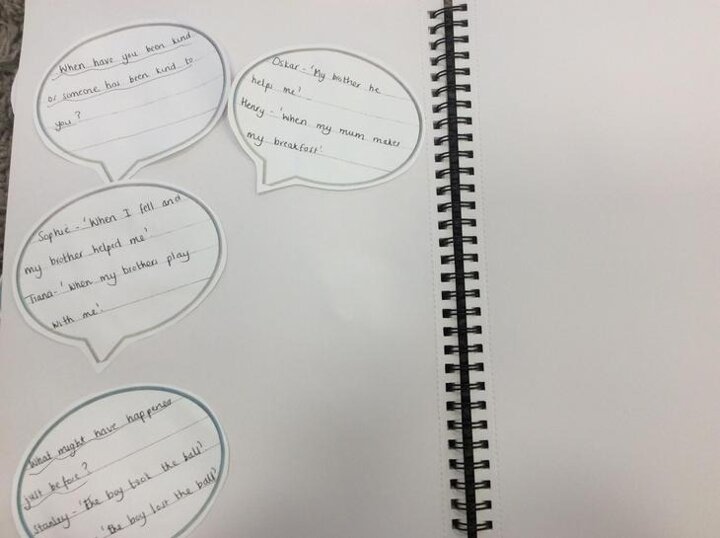 When have you been kind
or someone has been kind to
you?
Oskar - 'My brother he
helps me'.
Henry - 'when my mum makes
my breakfast'.
Sophie - 'When I fell and
my brother helped me'.
Tiana - 'when my brothers play
with me'.
What might have happened
just before?
Stanley - 'The boy took the ball'.
'The boy lost the ball'